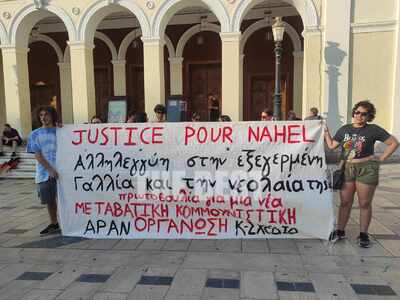 JUSTICE POUR NAHEL
Αλληλεγγύη στην εξεγερμένη
Γαλλία και την νεολαία της
πρωτοβουλία για μια νέα
ΜΕΤΑΒΑΤΙΚΗ ΚΟΜΜΟΥΝΙΣΤΙΚΗ
ΑΡΑΝ ΟΡΓΑΝΩΣΗ Κ-ΣΧΕΔΙΟ